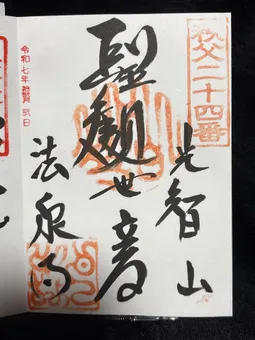 秩父二十四番
光智山
聖観世音
法泉寺
令和七年